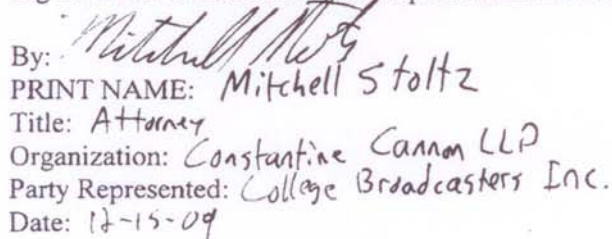 By: Mitchell Stoltz
PRINT NAME: Mitchell Stoltz
Title: Attorney
Organization: Constantine Cannon LLP
Party Represented: College Broadcasters Inc.
Date: 12-15-09